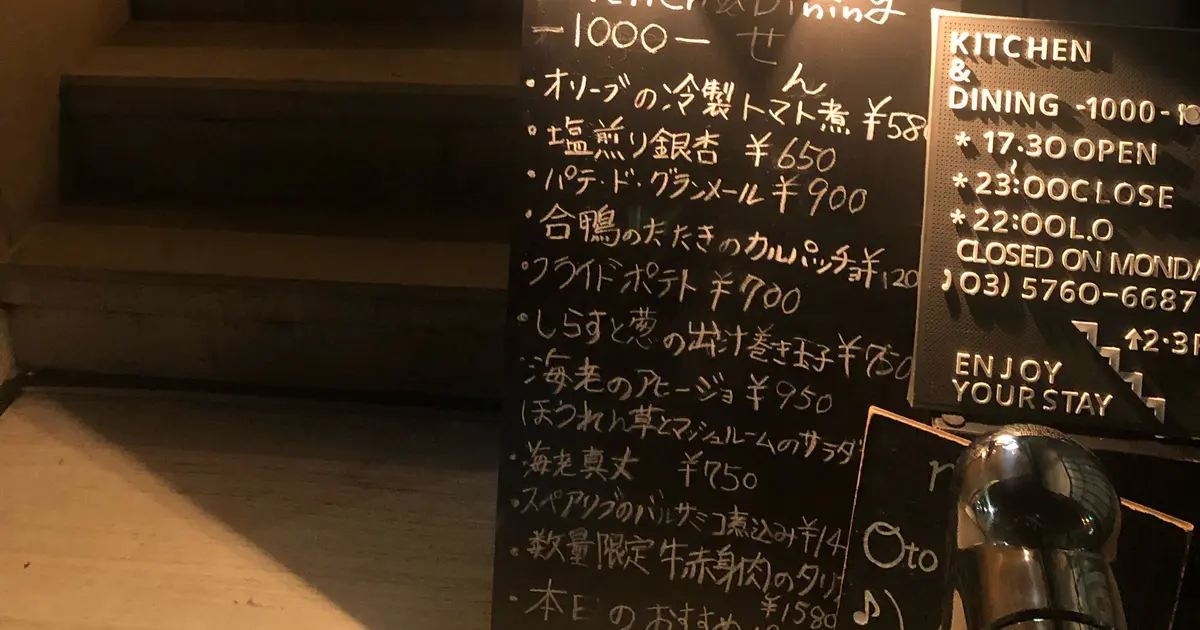 Kitchen & Dining
-1000- せ
ん
・オリーブの冷製トマト煮 ¥580
・塩煎り銀杏 ¥650
・パテ・ド・グランメール ¥900
・合鴨のたたきのカルパッチョ ¥120
・フライドポテト ¥700
・しらすと葱の出汁巻き玉子 ¥750
・海老のアヒージョ ¥950
ほうれん草とマッシュルームのサラダ
・海老真丈 ¥750
・スペアリブのバルサミコ煮込み ¥14
・数量限定 牛赤身肉のタリ
¥1580
・本日のおすすめ
KITCHEN
&
DINING -1000-
* 17:30 OPEN
~
* 23:00 CLOSE
* 22:00 L.O
CLOSED ON MONDA
03) 5760-6687
↑2・3F
ENJOY
YOUR STAY
Oto
♪)